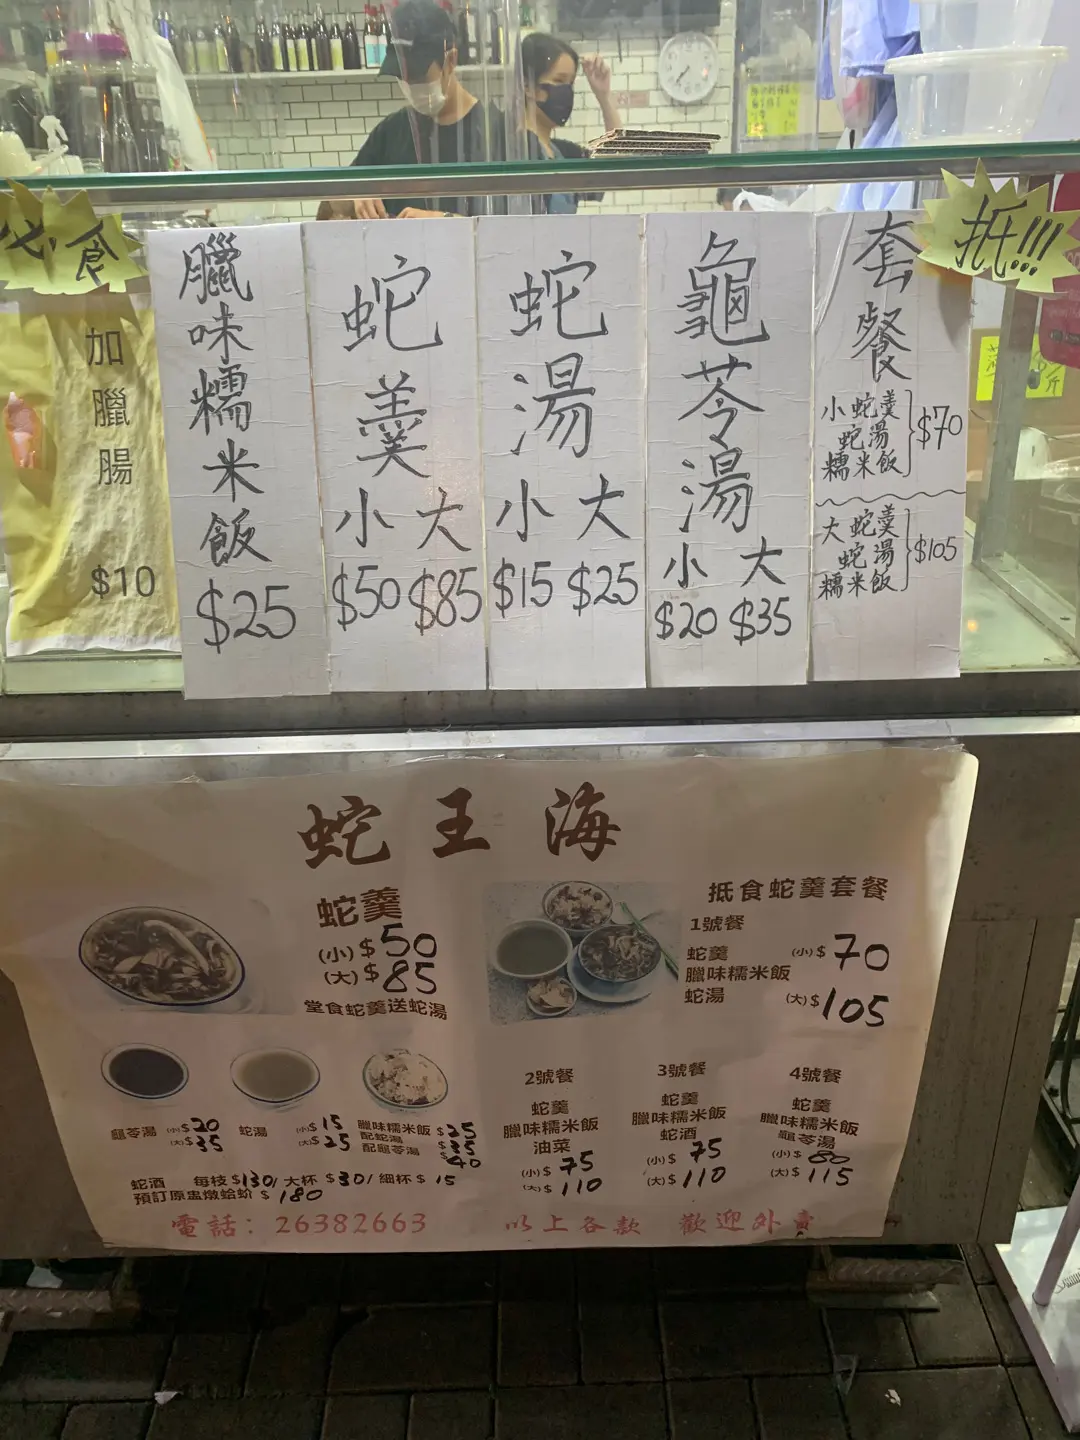 必食
加臘腸
$10
臘味糯米飯
$25
蛇羹
小 大
$50 $85
蛇湯
小 大
$15 $25
龜苓湯
小 大
$20 $35
套餐
小蛇羹
蛇湯
糯米飯
$70
大蛇羹
蛇湯
糯米飯
$105
抵!!!
蛇王海
蛇羹
(小) $50
(大) $85
堂食蛇羹送蛇湯
抵食蛇羹套餐
1號餐
蛇羹 (小) $70
臘味糯米飯
蛇湯 (大) $105
龜苓湯 (小) $20
(大) $35
蛇湯 (小) $15
(大) $25
臘味糯米飯 $25
配蛇湯 $35
配龜苓湯 $40
2號餐
蛇羹
臘味糯米飯
油菜
(小) $75
(大) $110
3號餐
蛇羹
臘味糯米飯
蛇酒
(小) $75
(大) $110
4號餐
蛇羹
臘味糯米飯
龜苓湯
(小) $80
(大) $115
蛇酒 每枝 $130/ 大杯 $30/ 細杯 $15
預訂原盅燉蛤蚧 $180
電話: 26382663 以上各款 歡迎外賣